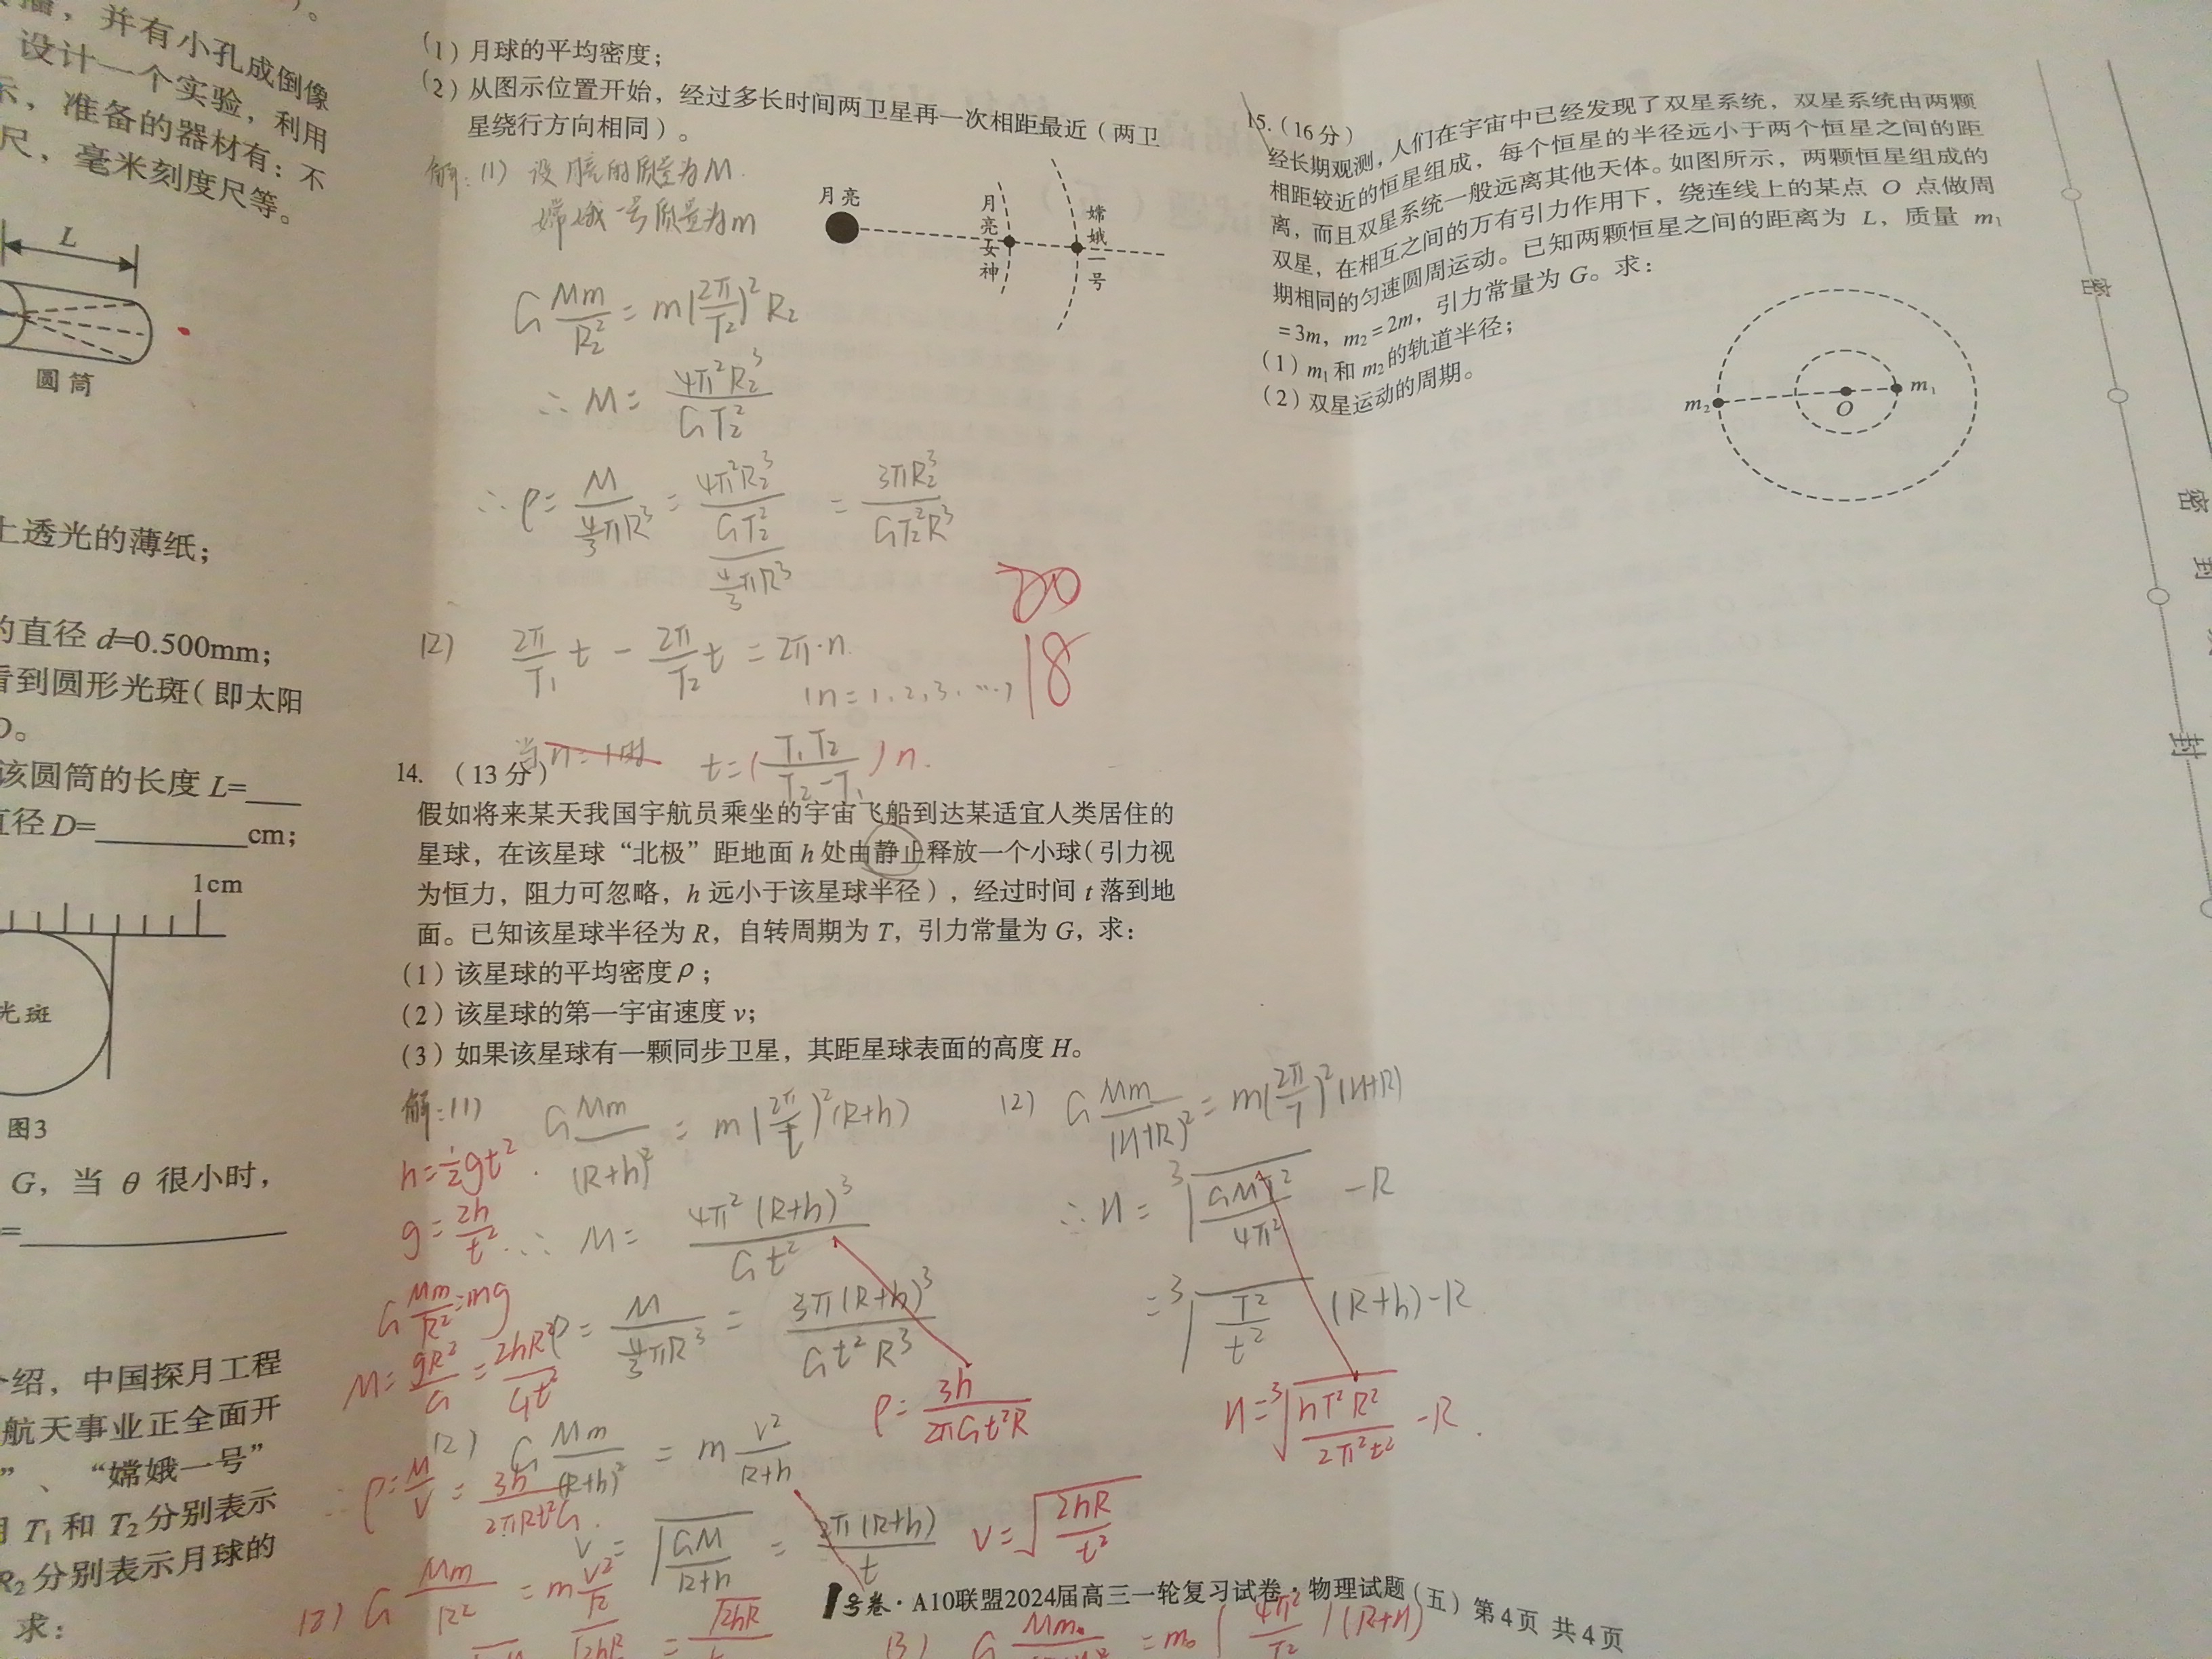 ，并有小孔成倒像
设计一个实验，利用
示，准备的器材有：不
尺，毫米刻度尺等。
L
圆筒
上透光的薄纸；
的直径 d=0.500mm；
看到圆形光斑（即太阳
该圆筒的长度 L=___
直径 D=________cm；
1cm
光斑
图3
G，当 θ 很小时，
=________
介绍，中国探月工程
航天事业正全面开
”、“嫦娥一号”
用 T₁ 和 T₂ 分别表示
R₂ 分别表示月球的
求：
（1）月球的平均密度；
（2）从图示位置开始，经过多长时间两卫星再一次相距最近（两卫
星绕行方向相同）。
月亮
月亮女神
嫦娥一号
解：(1) 设月亮的质量为M.
嫦娥一号质量为m
G Mm/R₂² = m(2π/T₂)² R₂
∴ M = 4π²R₂³/GT₂²
∴ ρ = M/(4/3 πR³) = (4π²R₂³/GT₂²)/(4/3 πR³) = 3πR₂³/GT₂²R³
20
18
(2) 2π/T₁ t - 2π/T₂ t = 2π·n
(n=1、2、3、…)
当n=1时 t=(T₁T₂/(T₂-T₁))n.
14. （13分）
假如将来某天我国宇航员乘坐的宇宙飞船到达某适宜人类居住的
星球，在该星球“北极”距地面 h 处由静止释放一个小球（引力视
为恒力，阻力可忽略，h 远小于该星球半径），经过时间 t 落到地
面。已知该星球半径为 R，自转周期为 T，引力常量为 G，求：
（1）该星球的平均密度ρ；
（2）该星球的第一宇宙速度 v；
（3）如果该星球有一颗同步卫星，其距星球表面的高度 H。
解：(1) G Mm/(R+h)² = m(2π/t)²(R+h)
h=½gt².
g=2h/t².
∴ M = 4π²(R+h)³/Gt²
G Mm/R² = mg
ρ = M/(4/3 πR³) = 3π(R+h)³/Gt²R³
M = gR²/G = 2hR²/Gt²
ρ = 3h/2πGt²R
(2) G Mm/(R+h)² = m v²/(R+h)
∴ ρ = M/V = 3h/2πRt²G.
v = √(GM/(R+h)) = 2π(R+h)/t
v = √(2hR/t²)
(2) G Mm/R² = m v²/R
√2hR = √2hR/t
(2) G Mm/(H+R)² = m(2π/T)²(H+R)
∴ H = ³√(GMT²/4π²) - R
= ³√(T²/t²) (R+h)-R
H = ³√(hT²R²/2π²t²) - R.
(3) G Mm₀ = m₀(4π²/T²)(R+H)
1号卷·A10联盟2024届高三一轮复习试卷·物理试题（五）第4页 共4页
15.（16分）
经长期观测，人们在宇宙中已经发现了双星系统，双星系统由两颗
相距较近的恒星组成，每个恒星的半径远小于两个恒星之间的距
离，而且双星系统一般远离其他天体。如图所示，两颗恒星组成的
双星，在相互之间的万有引力作用下，绕连线上的某点 O 点做周
期相同的匀速圆周运动。已知两颗恒星之间的距离为 L，质量 m₁
=3m，m₂=2m，引力常量为 G。求：
（1）m₁ 和 m₂ 的轨道半径；
（2）双星运动的周期。
m₂
O
m₁
密
密
封
封